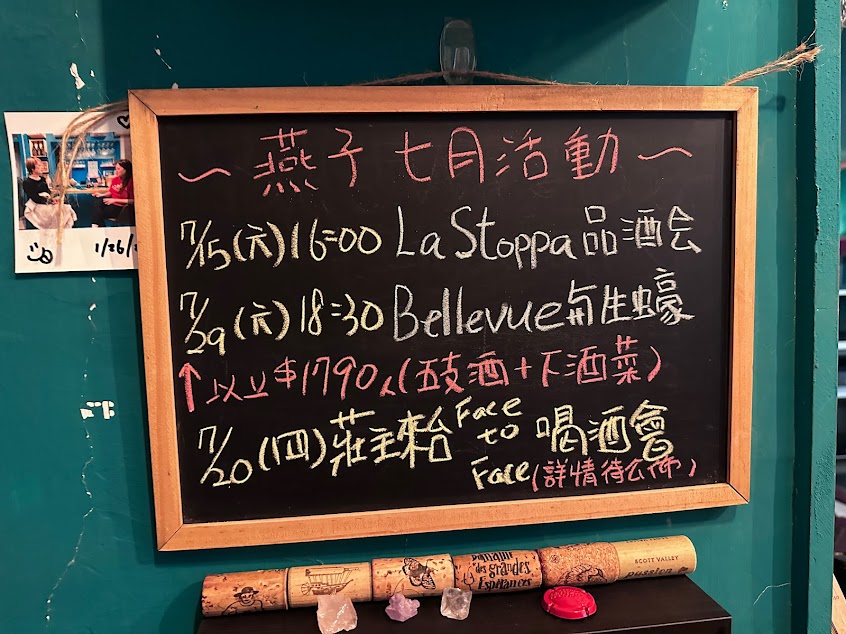 ~ 燕子 七月活動 ~
7/15(六)16:00 La Stoppa 品酒会
7/29(六)18:30 Bellevue与生蠔
↑以上$1790/人(五支酒+下酒菜)
7/20(四)莊主來台 Face to Face 喝酒會
(詳情待公佈)
1/26/
des grandes
Espérances
SCOTT VALLEY
passion